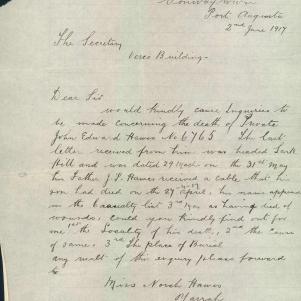 Port Augusta
2nd June 1917
The Secretary
Verco Building
Dear Sir
would kindly cause Inquiries to
be made concerning the death of Private
John Edward Hawes No 6765 The last
letter received from him was headed Lark
Hill and was dated 29 March on the 31st May
his Father J. P. Hawes received a cable that his
son had died on the 27 April his name appeared
in the Casualty list 3rd as having died of
wounds, could you kindly find out for
me 1st the Locality of his death, 2nd the Cause
of same, 3rd The place of Burial
any result of this enquiry please forward
to
Miss Norah Hawes